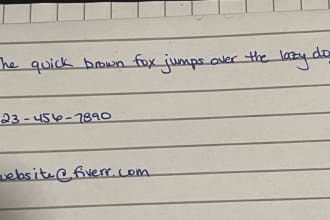 he quick brown fox jumps over the lazy do
23-456-7890
website@fiverr.com